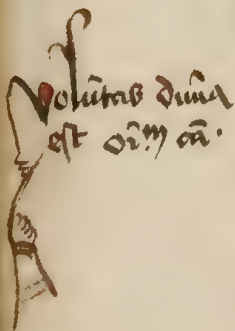 Volūtas diūa
est oīm cā.